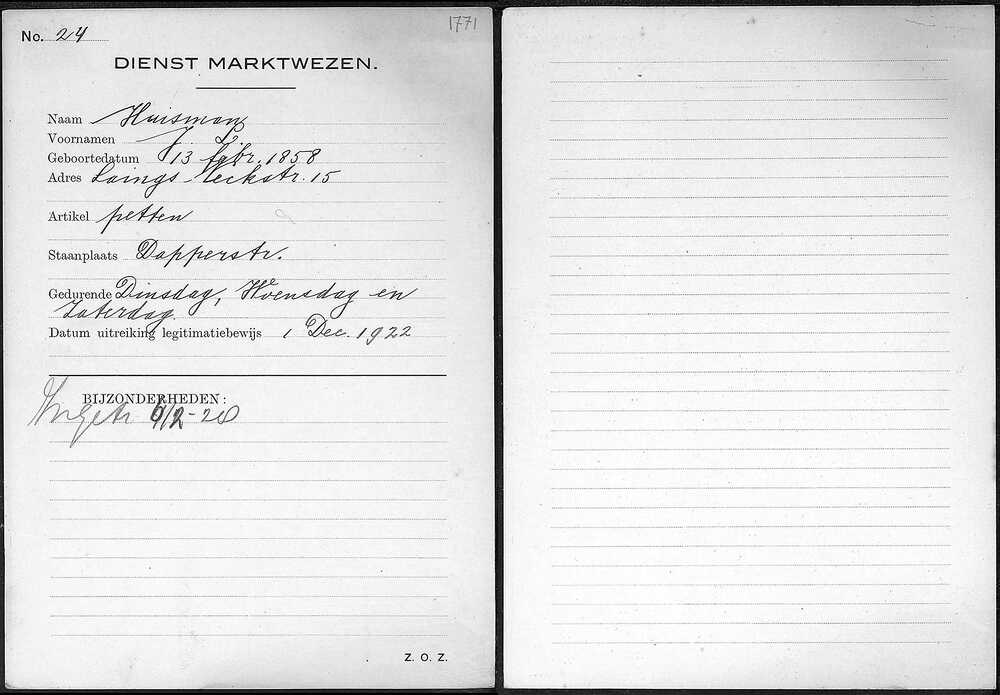 No. 24
1771
DIENST MARKTWEZEN.
Naam Huisman
Voornamen J. L.
Geboortedatum 13 febr. 1858
Adres Laings Neckstr. 15
Artikel petten
Staanplaats Dapperstr.
Gedurende Dinsdag, Woensdag en
Zaterdag.
Datum uitreiking legitimatiebewijs 1 Dec. 1922
BIJZONDERHEDEN:
Ingetr 6/2-28
Z. O. Z.